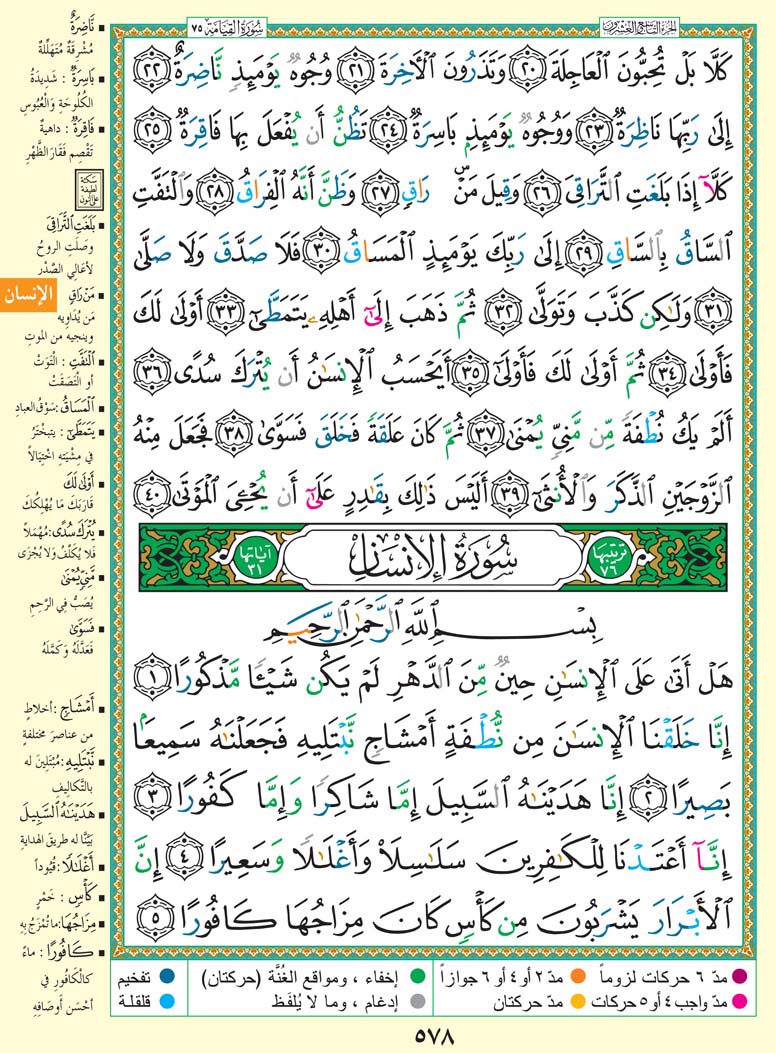 سُورَةُ القِيَامَة ٧٥
الجزء التاسع والعشرون
كَلَّا بَلْ تُحِبُّونَ ٱلْعَاجِلَةَ ٢٠ وَتَذَرُونَ ٱلْأَخِرَةَ ٢١ وُجُوهٌ يَوْمَئِذٍ نَّاضِرَةٌ ٢٢
إِلَىٰ رَبِّهَا نَاظِرَةٌ ٢٣ وَوُجُوهٌ يَوْمَئِذٍۭ بَاسِرَةٌ ٢٤ تَظُنُّ أَن يُفْعَلَ بِهَا فَاقِرَةٌ ٢٥
كَلَّآ إِذَا بَلَغَتِ ٱلتَّرَاقِىَ ٢٦ وَقِيلَ مَنْۜ رَاقٍ ٢٧ وَظَنَّ أَنَّهُ ٱلْفِرَاقُ ٢٨ وَٱلْتَفَّتِ
ٱلسَّاقُ بِٱلسَّاقِ ٢٩ إِلَىٰ رَبِّكَ يَوْمَئِذٍ ٱلْمَسَاقُ ٣٠ فَلَا صَدَّقَ وَلَا صَلَّىٰ
٣١ وَلَٰكِن كَذَّبَ وَتَوَلَّىٰ ٣٢ ثُمَّ ذَهَبَ إِلَىٰٓ أَهْلِهِۦ يَتَمَطَّىٰٓ ٣٣ أَوْلَىٰ لَكَ
فَأَوْلَىٰ ٣٤ ثُمَّ أَوْلَىٰ لَكَ فَأَوْلَىٰٓ ٣٥ أَيَحْسَبُ ٱلْإِنسَٰنُ أَن يُتْرَكَ سُدًى ٣٦
أَلَمْ يَكُ نُطْفَةً مِّن مَّنِىٍّ يُمْنَىٰ ٣٧ ثُمَّ كَانَ عَلَقَةً فَخَلَقَ فَسَوَّىٰ ٣٨ فَجَعَلَ مِنْهُ
ٱلزَّوْجَيْنِ ٱلذَّكَرَ وَٱلْأُنثَىٰٓ ٣٩ أَلَيْسَ ذَٰلِكَ بِقَٰدِرٍ عَلَىٰٓ أَن يُحْـِۧىَ ٱلْمَوْتَىٰ ٤٠
ترتيبها ٧٦ سُورَةُ الإِنسَان آياتها ٣١
بِسْمِ ٱللَّهِ ٱلرَّحْمَٰنِ ٱلرَّحِيمِ
هَلْ أَتَىٰ عَلَى ٱلْإِنسَٰنِ حِينٌ مِّنَ ٱلدَّهْرِ لَمْ يَكُن شَيْـًٔا مَّذْكُورًا ١
إِنَّا خَلَقْنَا ٱلْإِنسَٰنَ مِن نُّطْفَةٍ أَمْشَاجٍ نَّبْتَلِيهِ فَجَعَلْنَٰهُ سَمِيعًۢا
بَصِيرًا ٢ إِنَّا هَدَيْنَٰهُ ٱلسَّبِيلَ إِمَّا شَاكِرًا وَإِمَّا كَفُورًا ٣
إِنَّآ أَعْتَدْنَا لِلْكَٰفِرِينَ سَلَٰسِلَا۟ وَأَغْلَٰلًا وَسَعِيرًا ٤ إِنَّ
ٱلْأَبْرَارَ يَشْرَبُونَ مِن كَأْسٍ كَانَ مِزَاجُهَا كَافُورًا ٥
نَّاضِرَةٌ
مُشْرِقَةٌ مُتَهَلِّلَةٌ
بَاسِرَةٌ : شَدِيدَةُ
الكُلُوحَةِ وَالعُبُوسِ
فَاقِرَةٌ : داهيةٌ
تَقْصِم فَقَارَ الظَّهْرِ
سكتة
لطيفة
على النون
بَلَغَتِ ٱلتَّرَاقِىَ
وصَلَتِ الروحُ
لأعَالي الصَّدْر
مَنْ رَاقٍ
مَن يُدَاوِيه
وينجيه من الموتِ
ٱلْتَفَّتِ : الْتَوَتْ
أو الْتَصَقَتْ
ٱلْمَسَاقُ : سَوْقُ العبادِ
يَتَمَطَّىٰٓ : يتبخترُ
في مشْيَتِهِ اخْتِيَالاً
أَوْلَىٰ لَكَ
قَارَبَكَ مَا يُهْلِكُكَ
يُتْرَكَ سُدًى : مُهْمَلاً
فَلا يُكَلَّفُ ولا يُجْزَى
مَّنِىٍّ يُمْنَىٰ
يُصَبُّ فِي الرَّحِمِ
فَسَوَّىٰ
فَعَدَّلَهُ وَكَمَّلَهُ
الإنسان
أَمْشَاجٍ : أخلاطٍ
من عناصرَ مختلفةٍ
نَّبْتَلِيهِ : مُبْتَلِينَ له
بالتَّكَالِيفِ
هَدَيْنَٰهُ ٱلسَّبِيلَ
بَيَّنَّا له طريقَ الهدايةِ
أَغْلَٰلًا : قُيُوداً
كَأْسٍ : خَمْرٍ
مِزَاجُهَا : ما تُمْزَجُ بِهِ
كَافُورًا : ماءً
كالكَافُورِ في
أحْسَنِ أوصَافِهِ
مدّ ٦ حركات لزوماً مدّ ٢ أو ٤ أو ٦ جوازاً إخفاء ، ومواقع الغُنَّة (حركتان) تفخيم
مدّ واجب ٤ أو ٥ حركات مدّ حركتان إدغام ، وما لا يُلفَظ قلقلة
٥٧٨